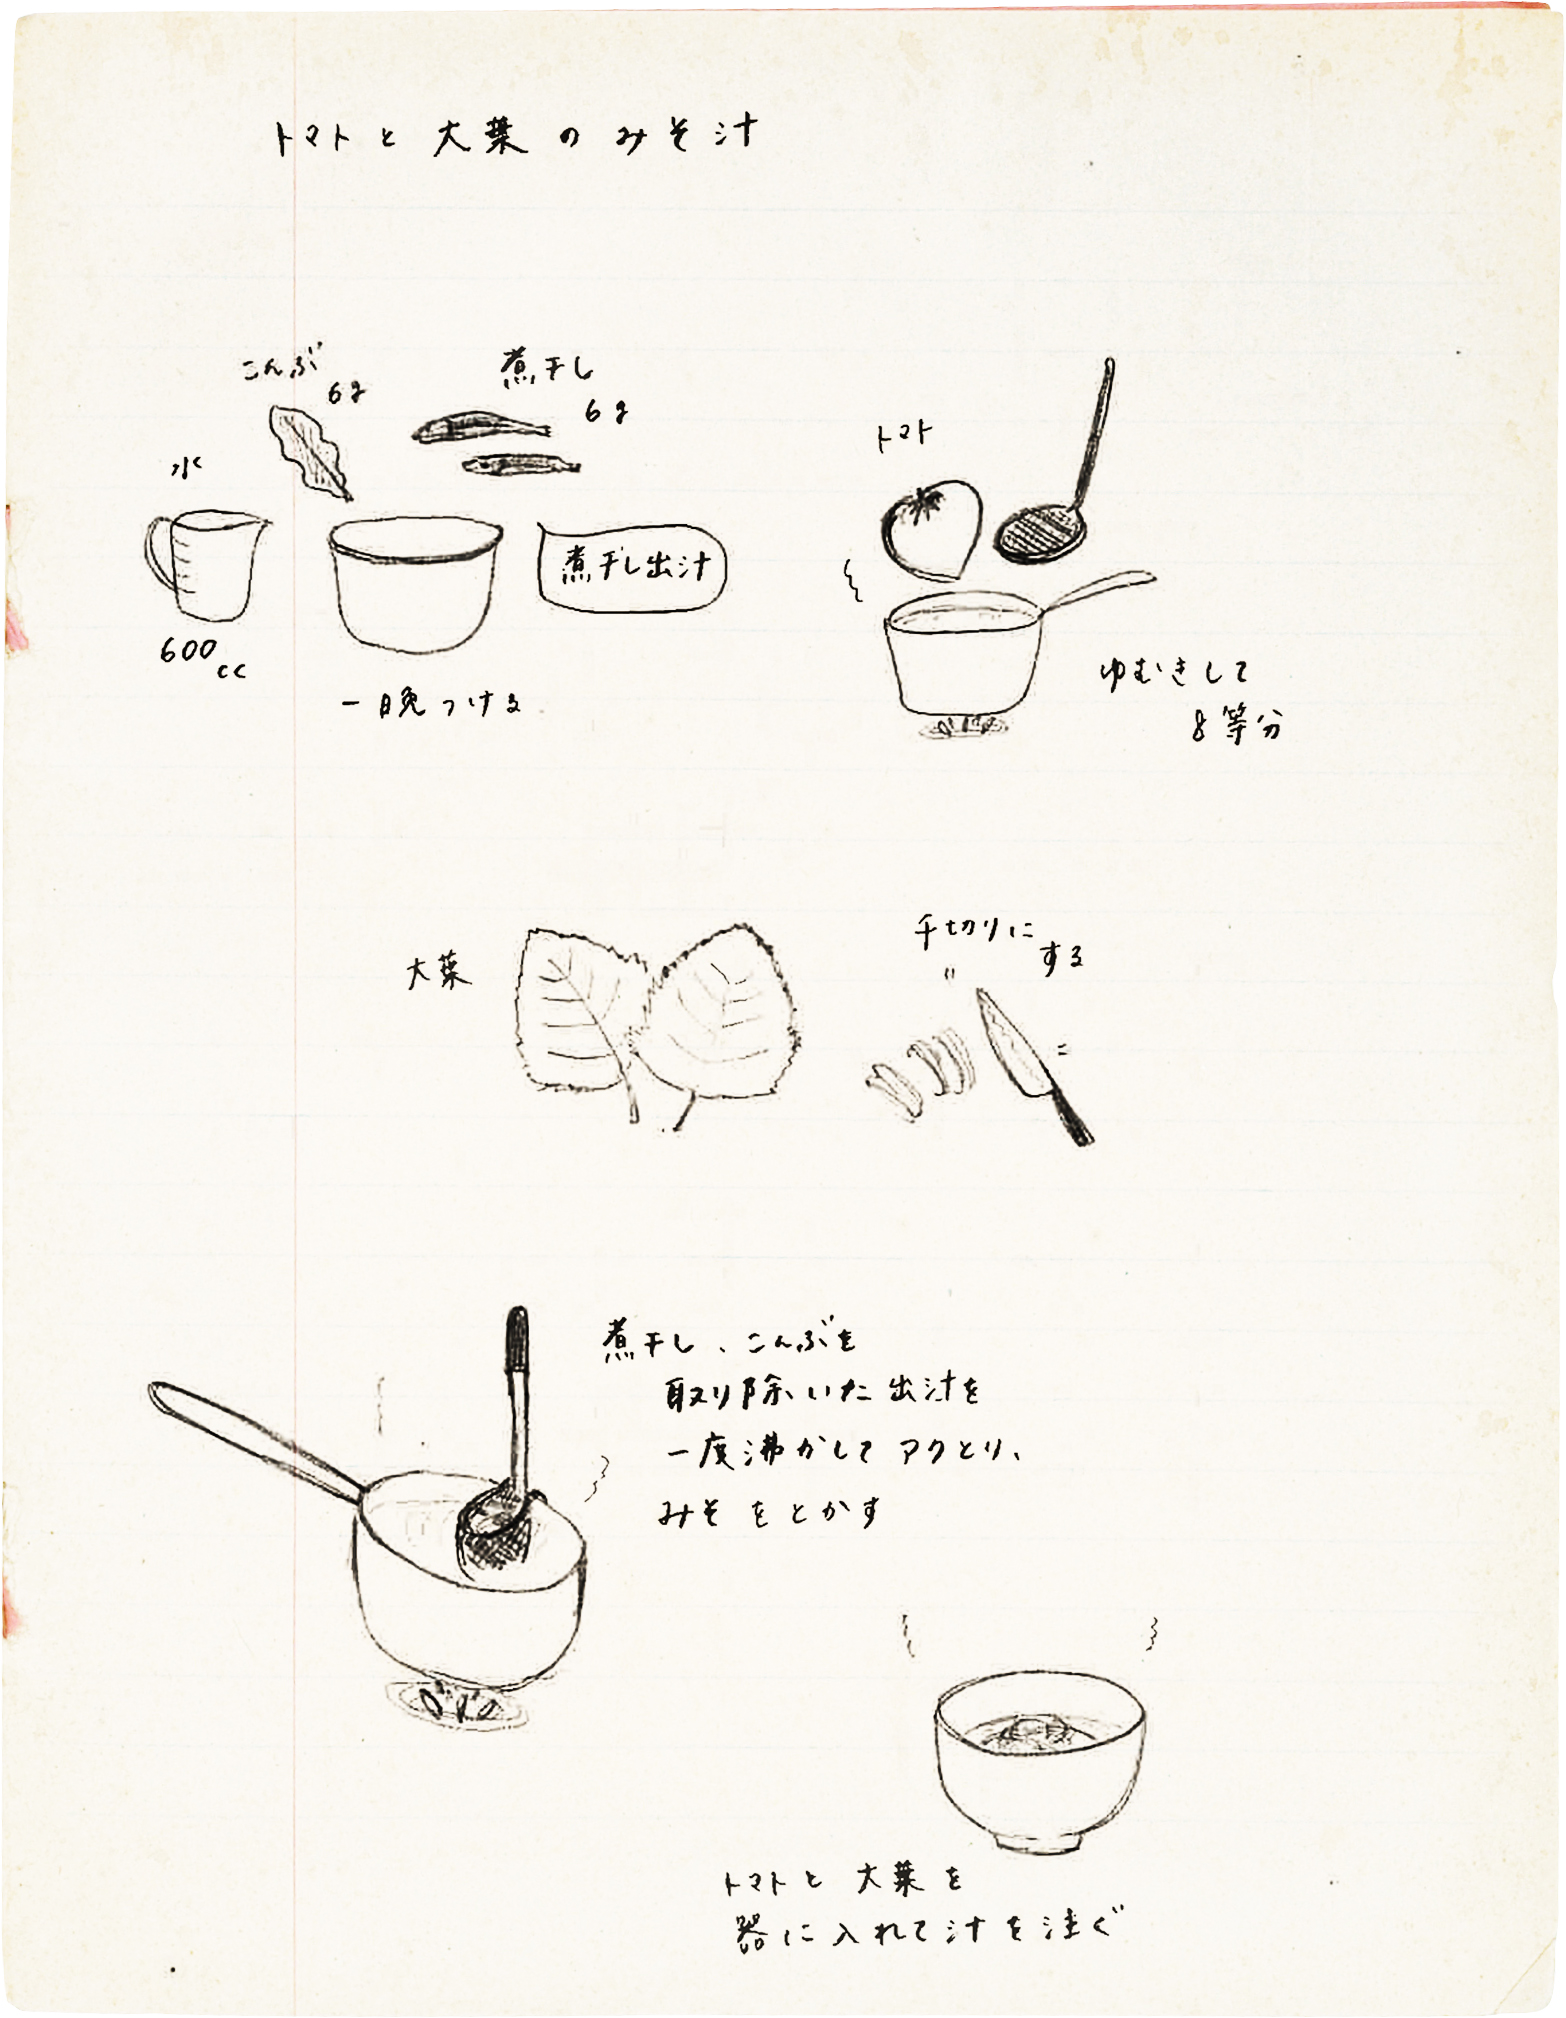 トマトと大葉のみそ汁
こんぶ
6g
煮干し
6g
水
600cc
煮干し出汁
一晩つける
トマト
ゆむきして
8等分
大葉
千切りに
する
煮干し、こんぶを
取り除いた出汁を
一度沸かしてアクとり、
みそをとかす
トマトと大葉を
器に入れて汁を注ぐ